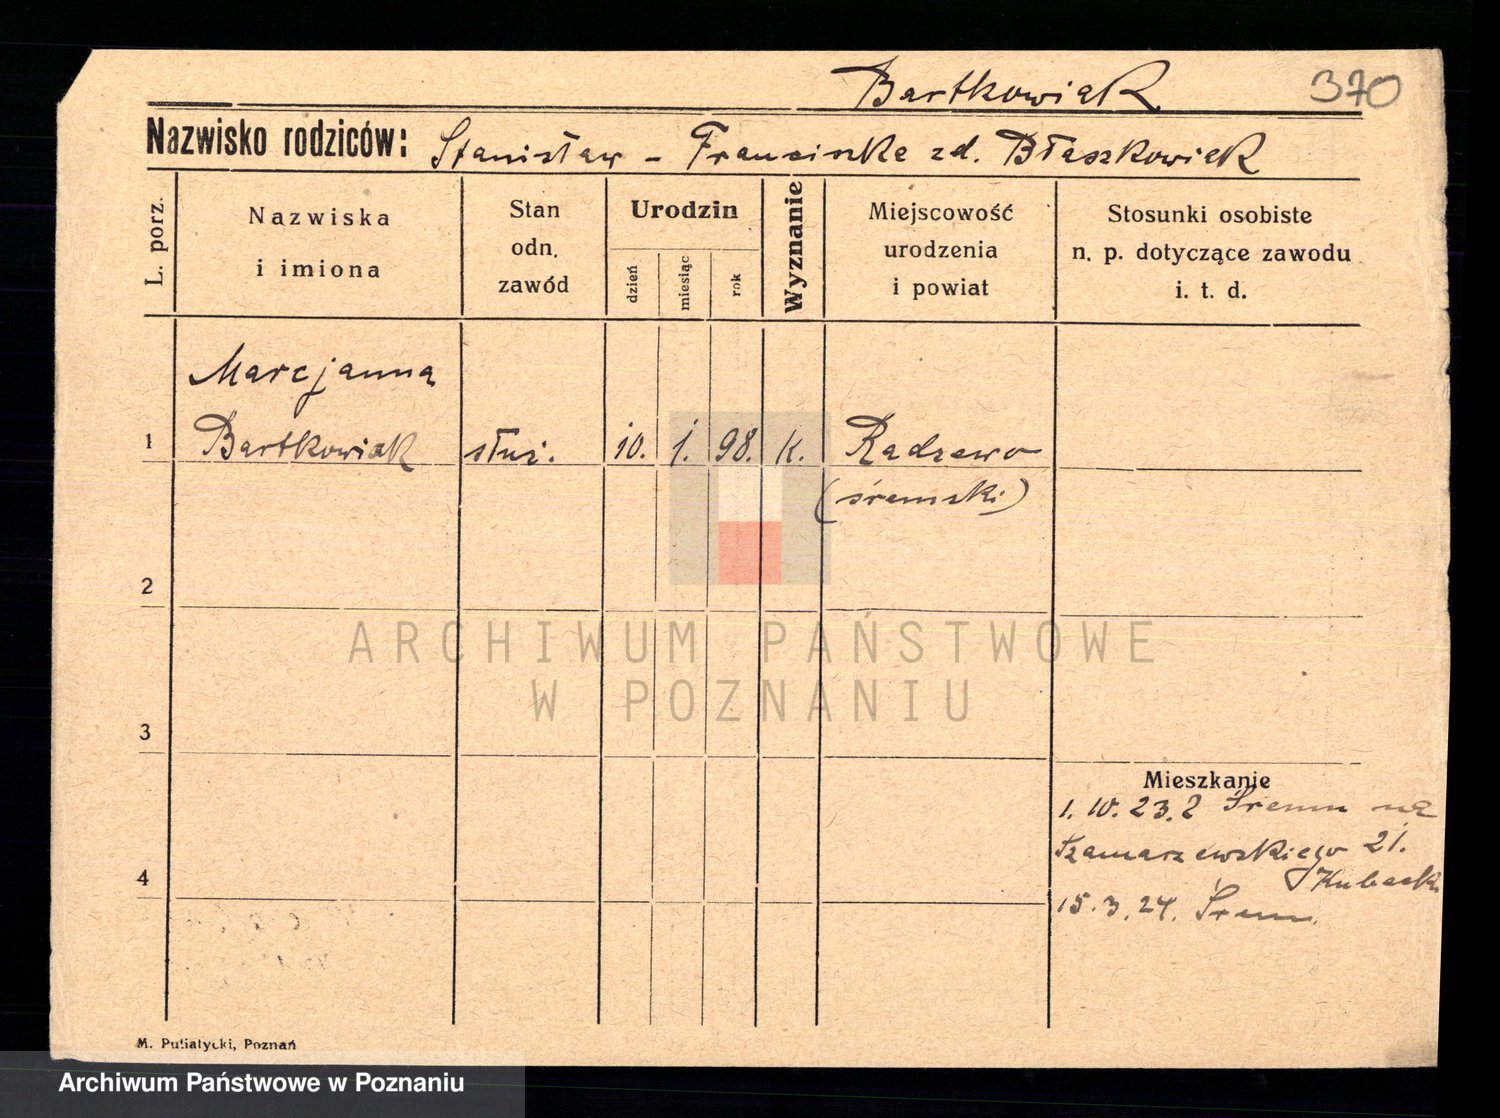 Bartkowiak 370
Nazwisko rodziców: Stanisław - Franciszka zd. Błaszkowiak
L. porz.
Nazwiska
i imiona
Stan
odn.
zawód
Urodzin
dzień
miesiąc
rok
Wyznanie
Miejscowość
urodzenia
i powiat
Stosunki osobiste
n. p. dotyczące zawodu
i. t. d.
Marcjanna
1 Bartkowiak służ. 10. 1. 98. k. Radzewo
(śremski)
2
ARCHIWUM PAŃSTWOWE
W POZNANIU
3
Mieszkanie
1. 10. 23. z Śremu na
Szamarzewskiego 21.
4
15. 3. 24. Śrem.
M. Putiatycki, Poznań
Archiwum Państwowe w Poznaniu